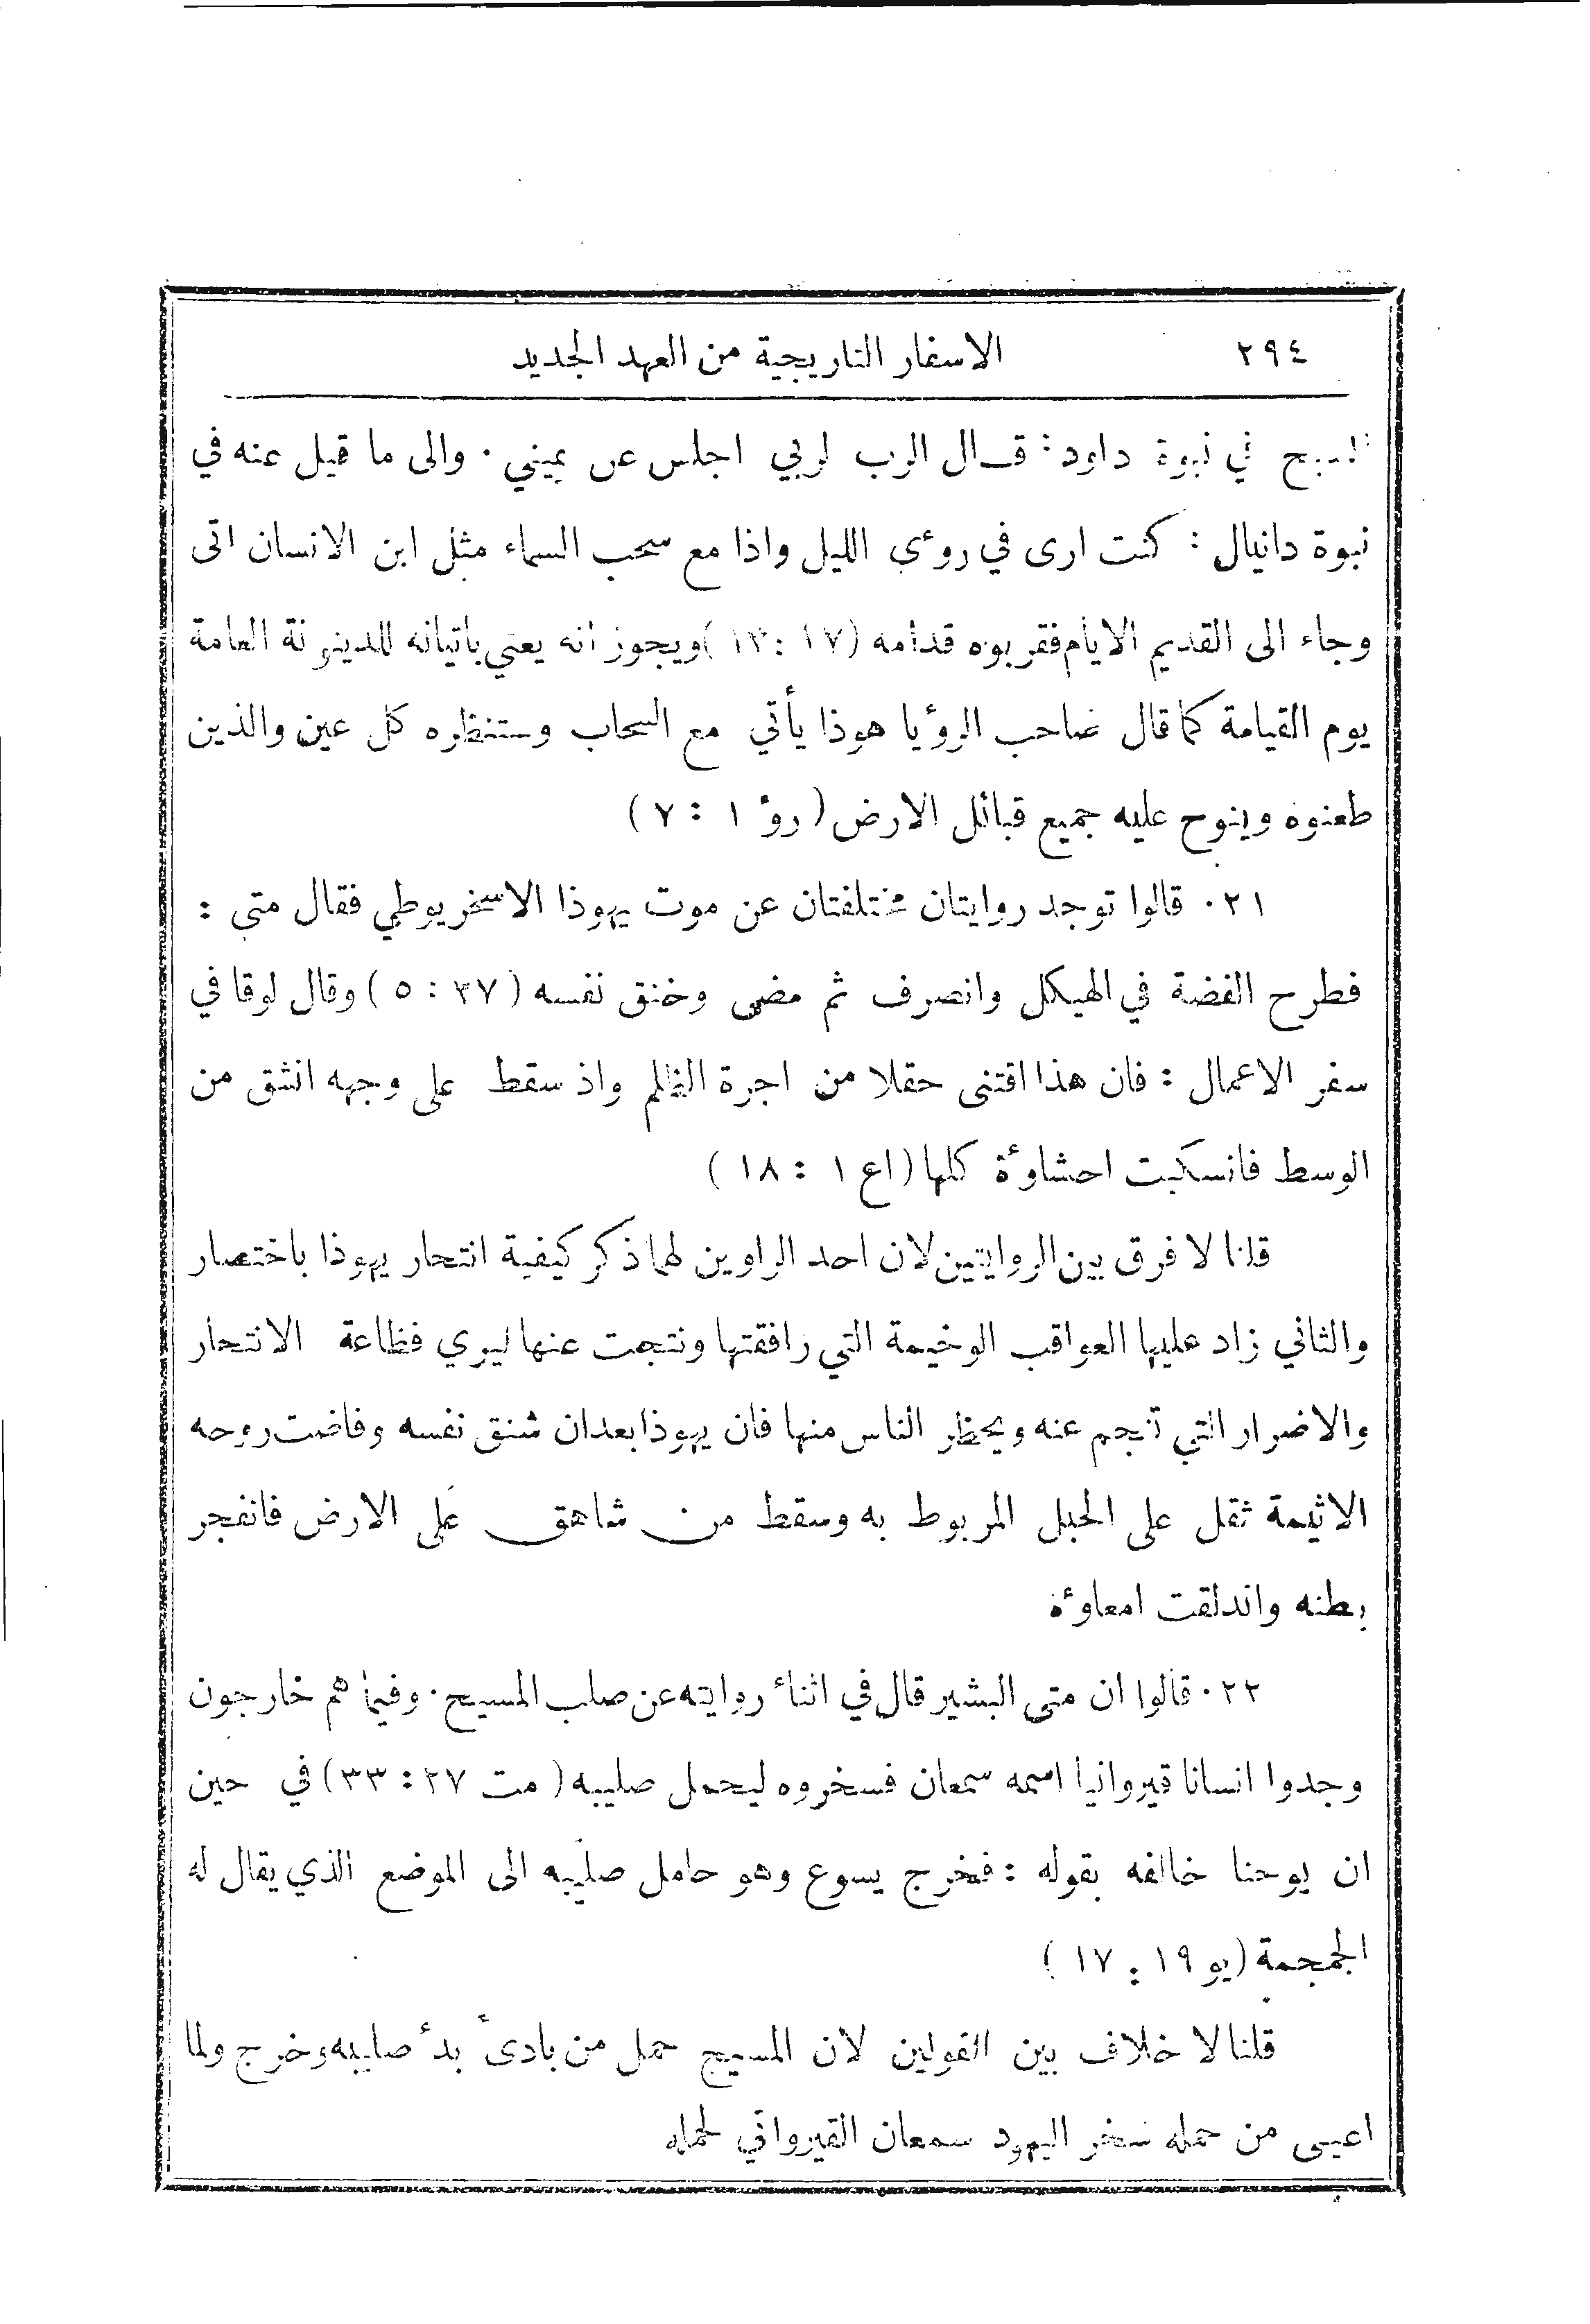 ٢٩٤ الاسفار التاريجية من العهد الجديد
المسيح في نبوة داود : قال الرب لربي اجلس عن يميني . والى ما قيل عنه في
نبوة دانيال : كنت ارى في روءى الليل واذا مع سحب السماء مثل ابن الانسان اتى
وجاء الى القديم الايام فقربوه قدامه (١٧ : ١٣) ويجوز انه يعني باتيانه للدينونة العامة
يوم القيامة كما قال صاحب الرؤيا هوذا يأتي مع السحاب وستنظره كل عين والذين
طعنوه وينوح عليه جميع قبائل الارض (روْ ١ : ٧)
٢١ . قالوا توجد روايتان مختلفتان عن موت يهوذا الاسخريوطي فقال متى :
فطرح الفضة في الهيكل وانصرف ثم مضى وخنق نفسه (٢٧ : ٥) وقال لوقا في
سفر الاعمال : فان هذا اقتنى حقلا من اجرة الظلم واذ سقط على وجهه انشق من
الوسط فانسكبت احشاوءة كلها (اع ١ : ١٨)
قلنا لا فرق بين الروايتين لان احد الراوين لهما ذكر كيفية انتحار يهوذا باختصار
والثاني زاد عليها العواقب الوخيمة التي رافقتها ونتجت عنها ليري فظاعة الانتحار
والاضرار التي تنجم عنه ويحظر الناس منها فان يهوذا بعد ان شنق نفسه وفاضت روحه
الاثيمة ثقل على الحبل المربوط به وسقط من شاهق على الارض فانفجر
بطنه واندلقت امعاوءه
٢٢ . قالوا ان متى البشير قال في اثناء روايته عن صلب المسيح . وفيما هم خارجون
وجدوا انسانا قيروانيا اسمه سمعان فسخروه ليحمل صليبه (مت ٢٧ : ٣٣) في حين
ان يوحنا خالفه بقوله : فخرج يسوع وهو حامل صليبه الى الموضع الذي يقال له
الجمجمة (يو ١٩ : ١٧)
قلنا لا خلاف بين القولين لان المسيح حمل من بادىء بدء صليبه وخرج ولما
اعيى من حمله سخر اليهود سمعان القيرواني لحمله